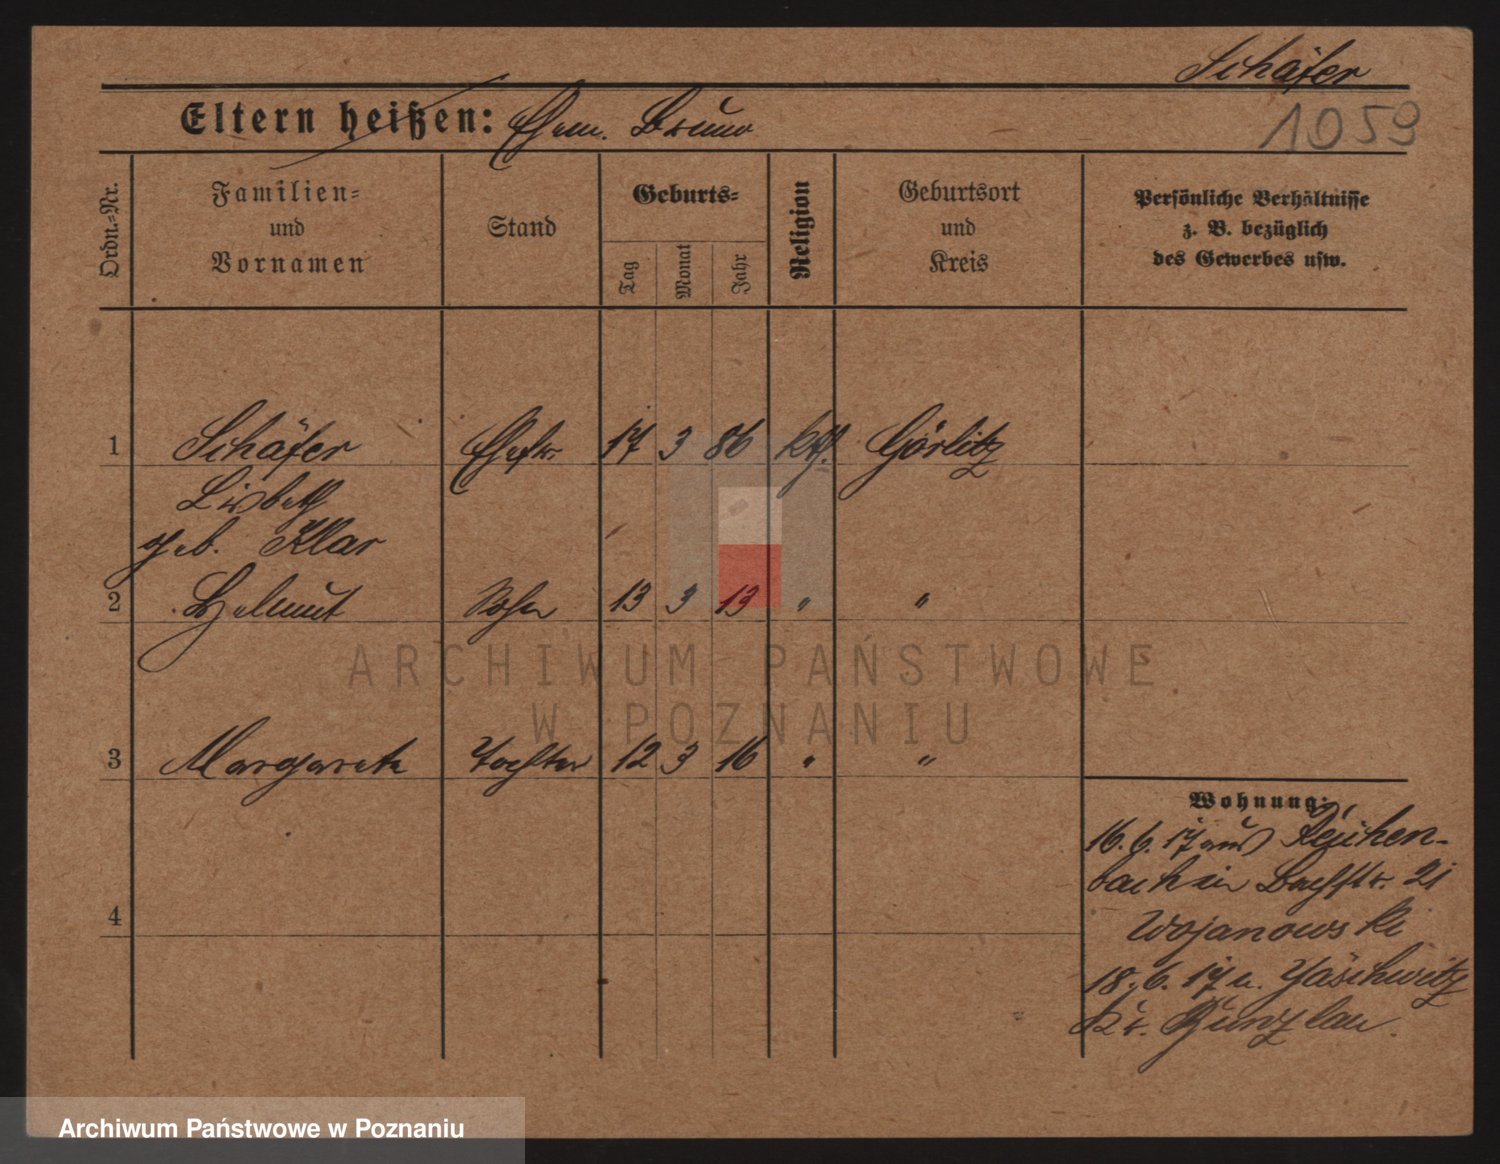 Schäfer
1059
Eltern heißen: Ehem. Bruno
Ordn.=Nr.
Familien=
und
Vornamen
Stand
Geburts=
Tag
Monat
Jahr
Religion
Geburtsort
und
Kreis
Persönliche Verhältnisse
z. B. bezüglich
des Gewerbes usw.
1 Schäfer Ehefr. 17 3 86 kth. Görlitz
Lisbeth
geb. Klar
2 Helmut Sohn 13 3 13 " "
ARCHIWUM PAŃSTWOWE
W POZNANIU
3 Margarete Tochter 12 3 16 " "
Wohnung:
16.6.17 aus Reichen-
bach in Bachstr. 21
Wojanowski
4
18.6.17 n. Jäschwitz
Kr. Bunzlau.
Archiwum Państwowe w Poznaniu